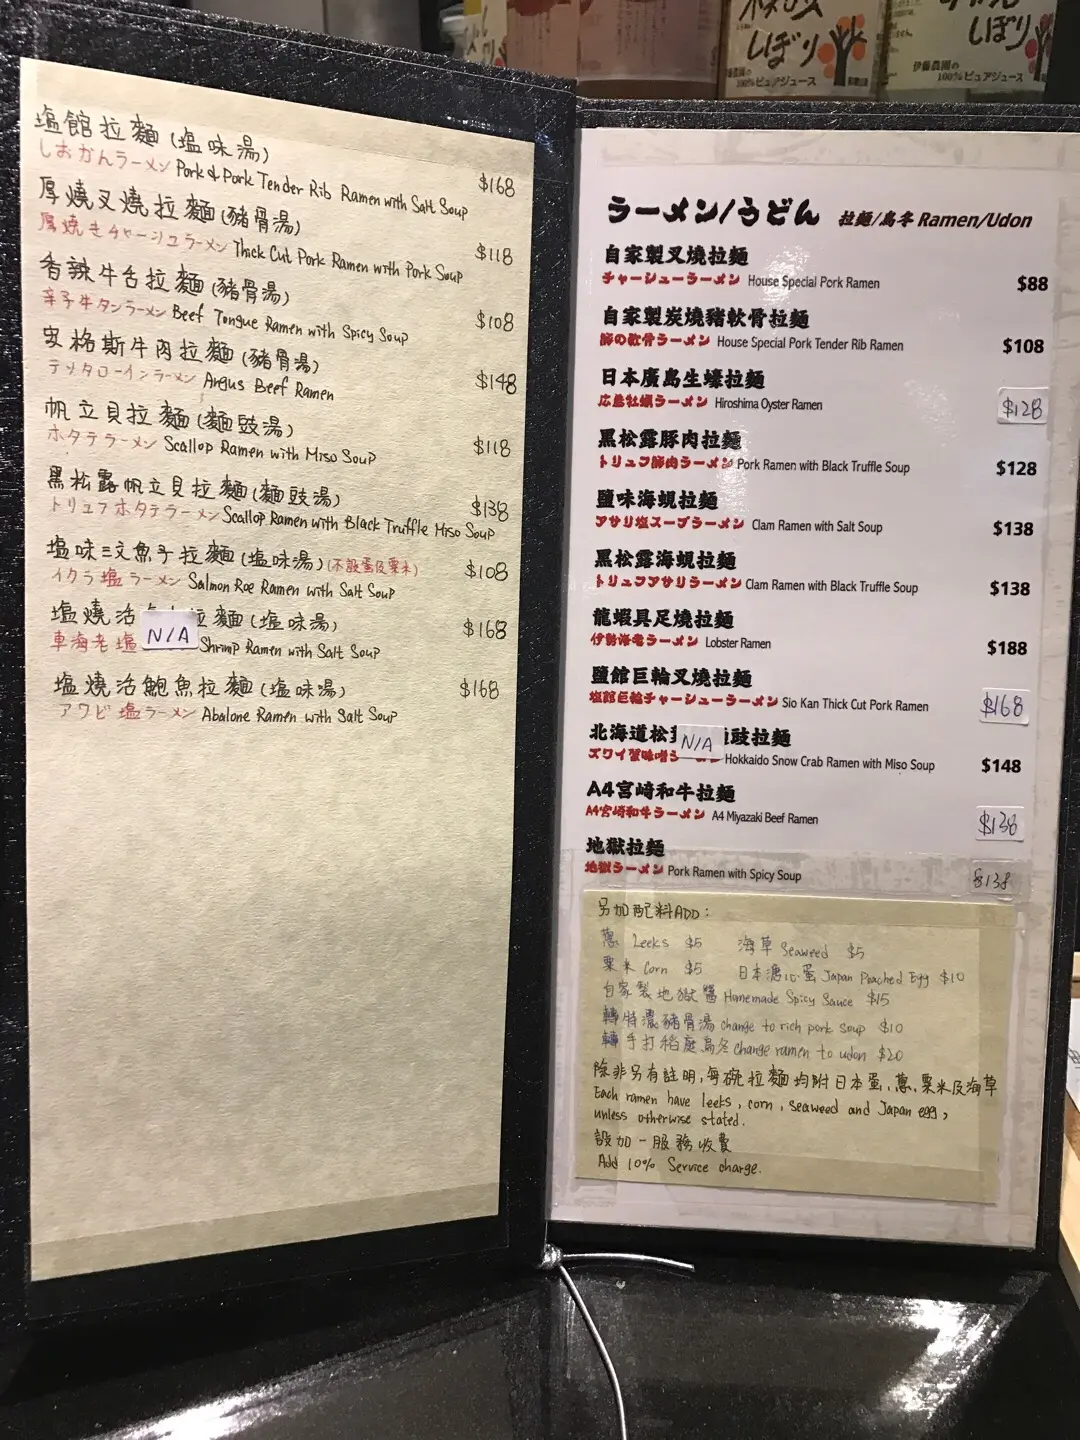 しぼり
しぼり
伊藤農園の
100%ピュアジュース
100%ピュアジュース
塩館拉麵(塩味湯)
しおかんラーメン Pork & Pork Tender Rib Ramen with Salt Soup $168
厚燒叉燒拉麵(豬骨湯)
厚焼きチャーシュラーメン Thick Cut Pork Ramen with Pork Soup $118
香辣牛舌拉麵(豬骨湯)
辛子牛タンラーメン Beef Tongue Ramen with Spicy Soup $108
安格斯牛肉拉麵(豬骨湯)
Argus Beef Ramen $148
帆立貝拉麵(麵豉湯)
ホタテラーメン Scallop Ramen with Miso Soup $118
黑松露帆立貝拉麵(麵豉湯)
トリュフホタテラーメン Scallop Ramen with Black Truffle Miso Soup $138
塩味三文魚子拉麵(塩味湯)(不設蛋及粟米)
イクラ塩ラーメン Salmon Roe Ramen with Salt Soup $108
塩燒活 拉麵(塩味湯)
車海老塩 N/A Shrimp Ramen with Salt Soup $168
塩燒活鮑魚拉麵(塩味湯)
アワビ塩ラーメン Abalone Ramen with Salt Soup $168
ラーメン/うどん 拉麵/烏冬 Ramen/Udon
自家製叉燒拉麵
チャーシューラーメン House Special Pork Ramen $88
自家製炭燒豬軟骨拉麵
豚の軟骨ラーメン House Special Pork Tender Rib Ramen $108
日本廣島生蠔拉麵
広島牡蠣ラーメン Hiroshima Oyster Ramen $128
黑松露豚肉拉麵
トリュフ豚肉ラーメン Pork Ramen with Black Truffle Soup $128
鹽味海蜆拉麵
アサリ塩スープラーメン Clam Ramen with Salt Soup $138
黑松露海蜆拉麵
トリュフアサリラーメン Clam Ramen with Black Truffle Soup $138
龍蝦具足燒拉麵
伊勢海老ラーメン Lobster Ramen $188
鹽館巨輪叉燒拉麵
塩館巨輪チャーシューラーメン Sio Kan Thick Cut Pork Ramen $168
北海道松 豉拉麵
ズワイ蟹味噌 N/A Hokkaido Snow Crab Ramen with Miso Soup $148
A4宮崎和牛拉麵
A4宮崎和牛ラーメン A4 Miyazaki Beef Ramen $138
地獄拉麵
地獄ラーメン Pork Ramen with Spicy Soup $138
另加配料ADD:
蔥 Leeks $5 海草 Seaweed $5
粟米 Corn $5 日本溏心蛋 Japan Poached Egg $10
自家製地獄醬 Homemade Spicy Sauce $15
轉特濃豬骨湯 change to rich pork soup $10
轉手打稻庭烏冬 change ramen to udon $20
除非另有註明,每碗拉麵均附日本蛋,蔥,粟米及海草
Each ramen have leeks, corn, seaweed and Japan egg,
unless otherwise stated.
設加一服務收費
Add 10% Service charge.